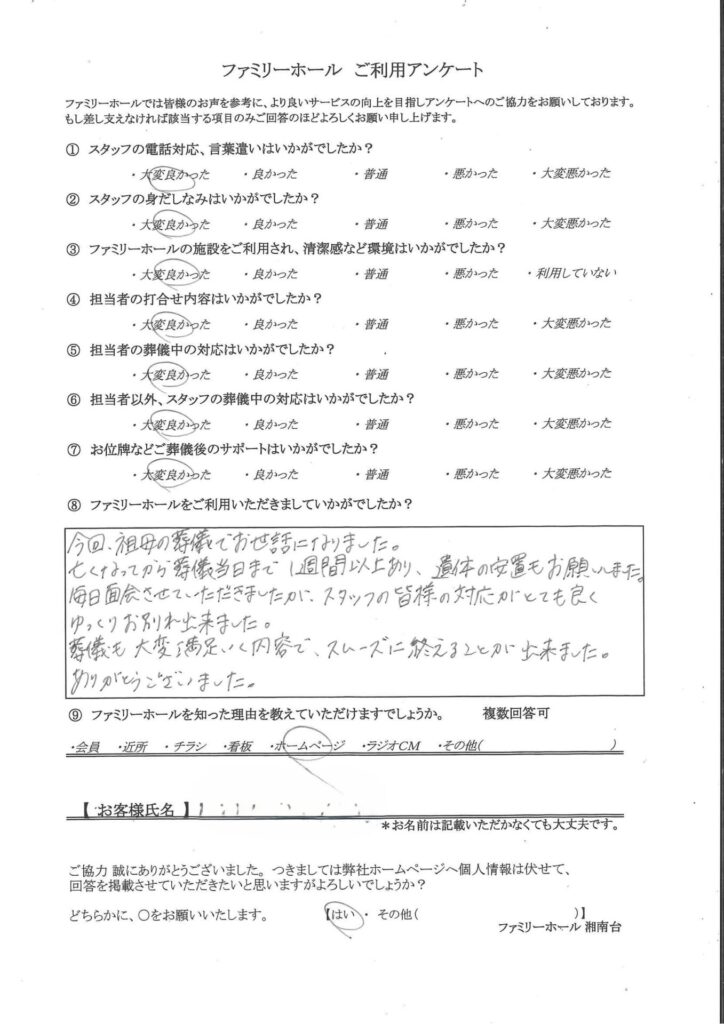 ファミリーホール ご利用アンケート
ファミリーホールでは皆様のお声を参考に、より良いサービスの向上を目指しアンケートへのご協力をお願いしております。
もし差し支えなければ該当する項目のみご回答のほどよろしくお願い申し上げます。
① スタッフの電話対応、言葉遣いはいかがでしたか？
・大変良かった ・良かった ・普通 ・悪かった ・大変悪かった
② スタッフの身だしなみはいかがでしたか？
・大変良かった ・良かった ・普通 ・悪かった ・大変悪かった
③ ファミリーホールの施設をご利用され、清潔感など環境はいかがでしたか？
・大変良かった ・良かった ・普通 ・悪かった ・利用していない
④ 担当者の打合せ内容はいかがでしたか？
・大変良かった ・良かった ・普通 ・悪かった ・大変悪かった
⑤ 担当者の葬儀中の対応はいかがでしたか？
・大変良かった ・良かった ・普通 ・悪かった ・大変悪かった
⑥ 担当者以外、スタッフの葬儀中の対応はいかがでしたか？
・大変良かった ・良かった ・普通 ・悪かった ・大変悪かった
⑦ お位牌などご葬儀後のサポートはいかがでしたか？
・大変良かった ・良かった ・普通 ・悪かった ・大変悪かった
⑧ ファミリーホールをご利用いただきましていかがでしたか？
今回、祖母の葬儀でお世話になりました。
亡くなってから葬儀当日まで1週間以上あり、遺体の安置もお願いしました。
毎日面会させていただきましたが、スタッフの皆様の対応がとても良く
ゆっくりお別れ出来ました。
葬儀も大変満足いく内容で、スムーズに終えることが出来ました。
ありがとうございました。
⑨ ファミリーホールを知った理由を教えていただけますでしょうか。 複数回答可
・会員 ・近所 ・チラシ ・看板 ・ホームページ ・ラジオCM ・その他( )
【 お客様氏名 】
＊お名前は記載いただかなくても大丈夫です。
ご協力 誠にありがとうございました。つきましては弊社ホームページへ個人情報は伏せて、
回答を掲載させていただきたいと思いますがよろしいでしょうか？
どちらかに、〇をお願いいたします。 【はい ・ その他( )】
ファミリーホール 湘南台